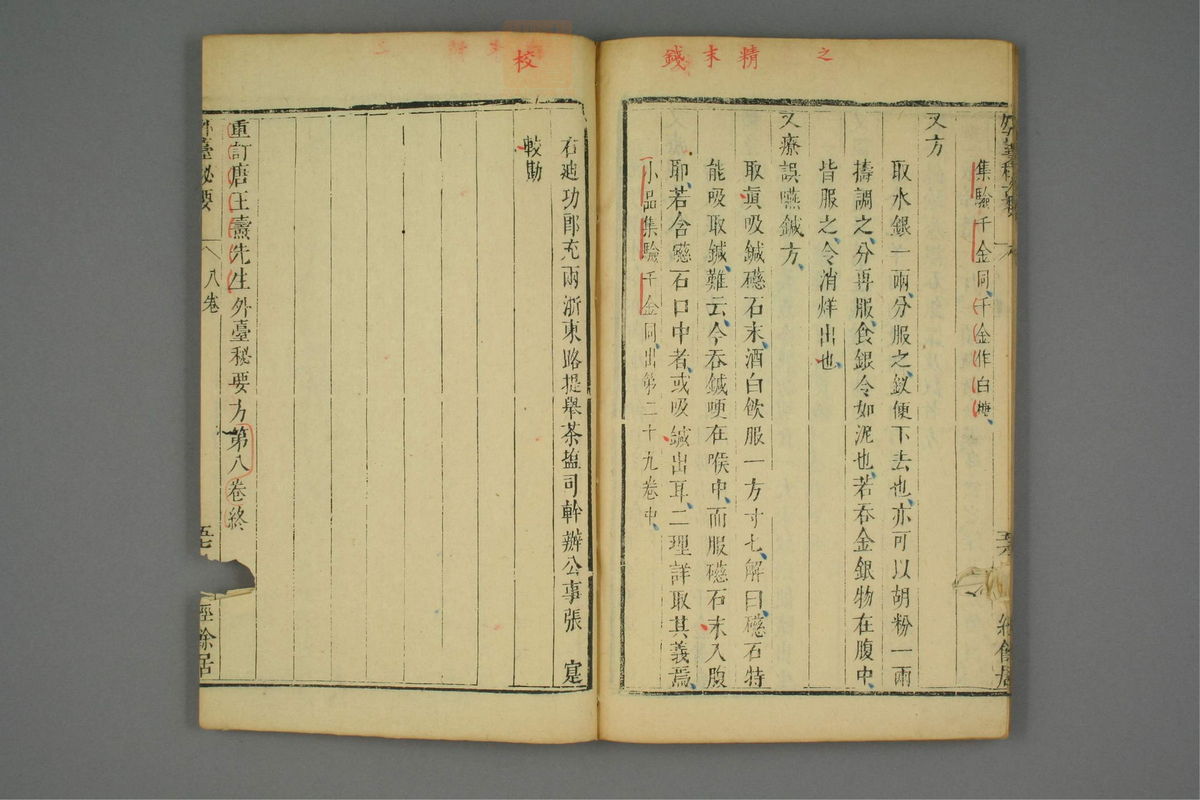 之
精
末
鍼
集驗千金同千金作白梅
又方
取水銀一兩分服之釵便下去也亦可以胡粉一兩
擣調之分再服食銀令如泥也若吞金銀物在腹中
皆服之令消烊出也
又療誤嚥鍼方
取真吸鍼礠石末酒白飲服一方寸匕解曰礠石特
能吸取鍼難云今吞鍼哽在喉中而服礠石末入腹
耶若含礠石口中者或吸鍼出耳二理詳取其義焉
小品集驗千金同出第二十九卷中
校
右迪功郎充兩浙東路提舉茶塩司幹辦公事張 寔
較勘
重訂唐王燾先生外臺秘要方第八卷終
外臺秘要
八卷
經餘居